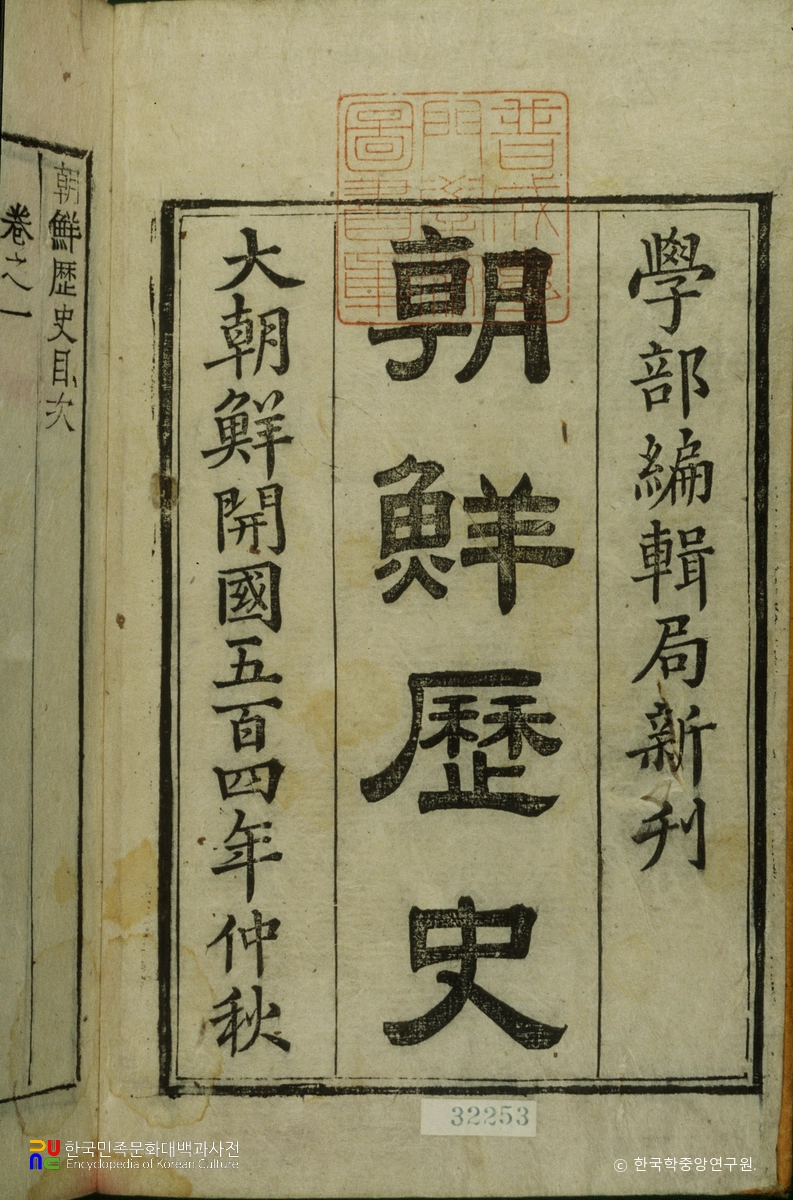 學部編輯局新刊
朝鮮歷史
大朝鮮開國五百四年仲秋
朝鮮歷史目次
卷之一
普成
門學
圖書
32253
한국민족문화대백과사전
Encyclopedia of Korean Culture
© 한국학중앙연구원.